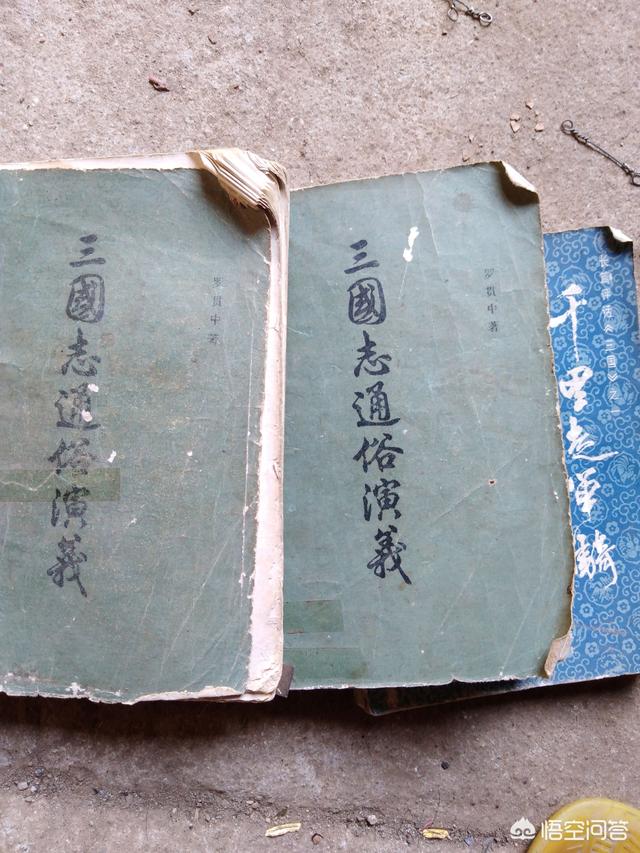 三國志通俗演義
罗贯中著
三國志通俗演義
罗贯中著
长篇评话《三国》之一
千里走单骑
悟空问答